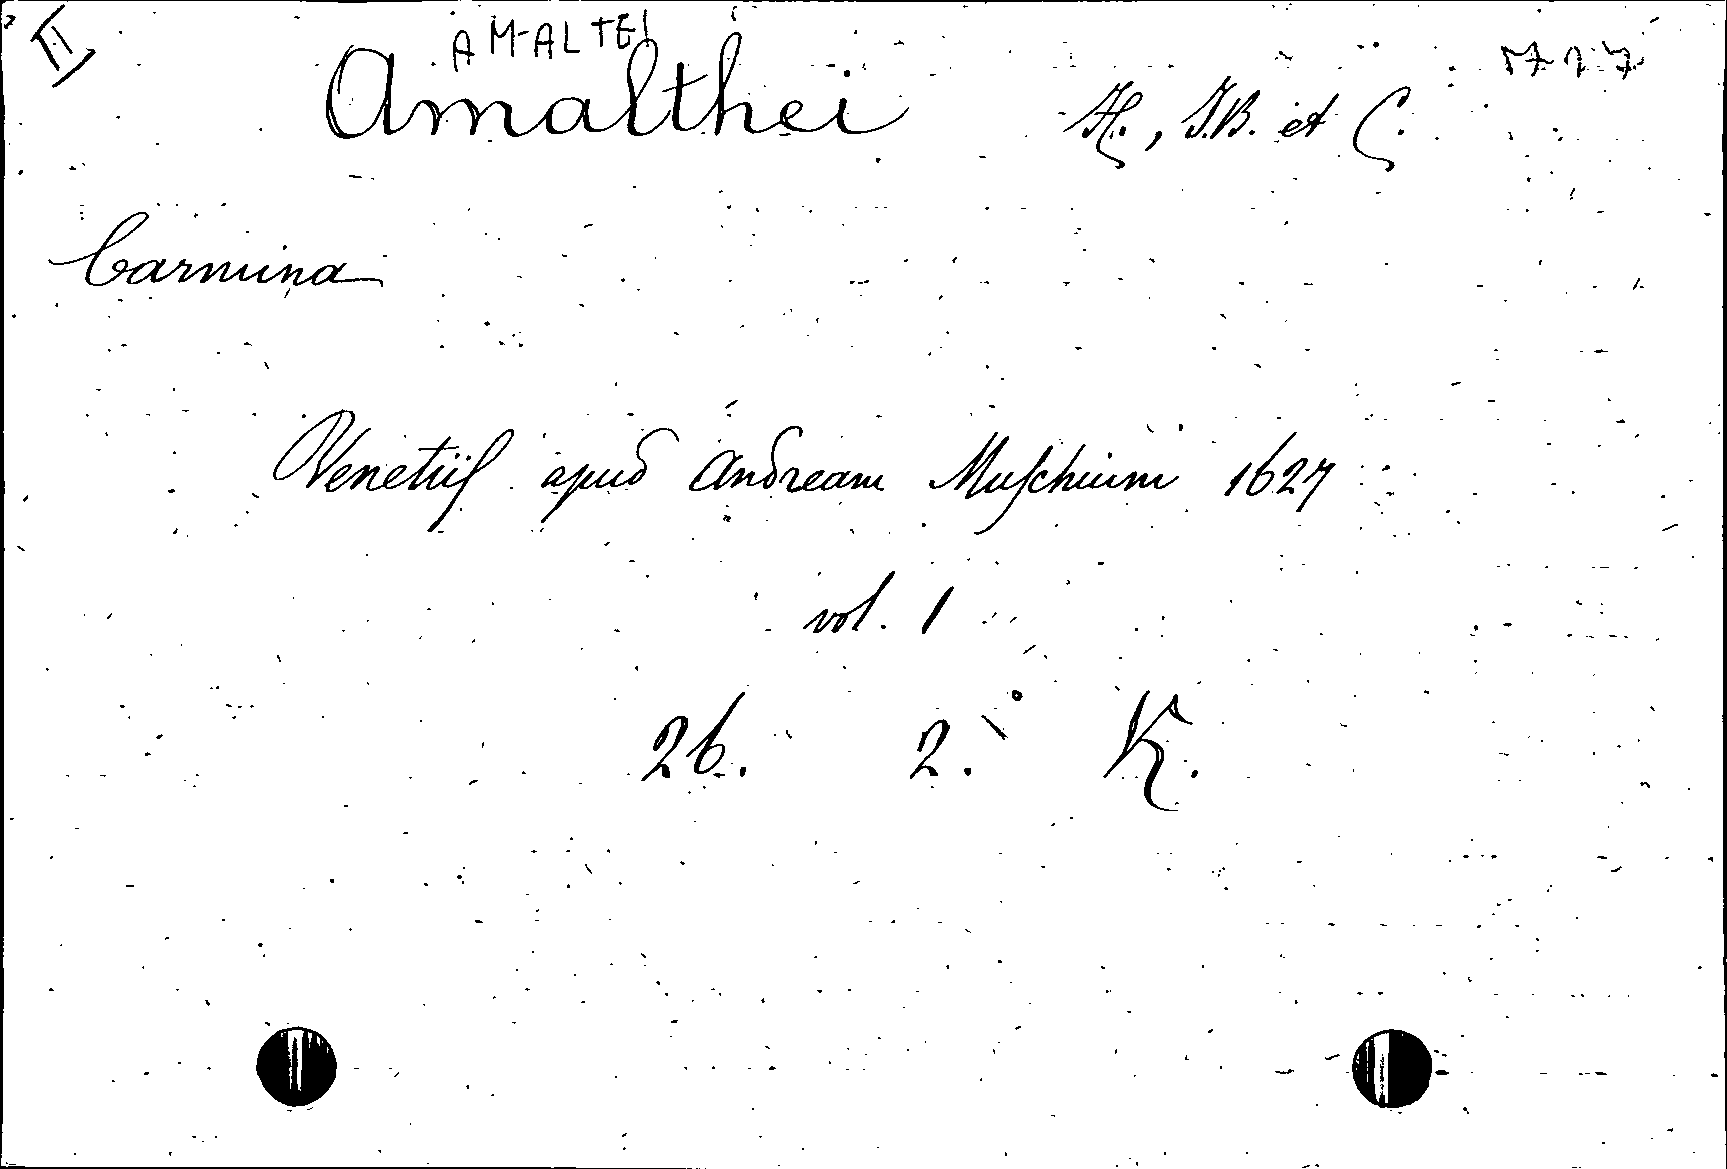 II
AMALTEI
Amalthei H., J.B. et C.
Carmina
Venetiiſ apud Andream Muſchium 1627
vol. 1
26. 2. K.